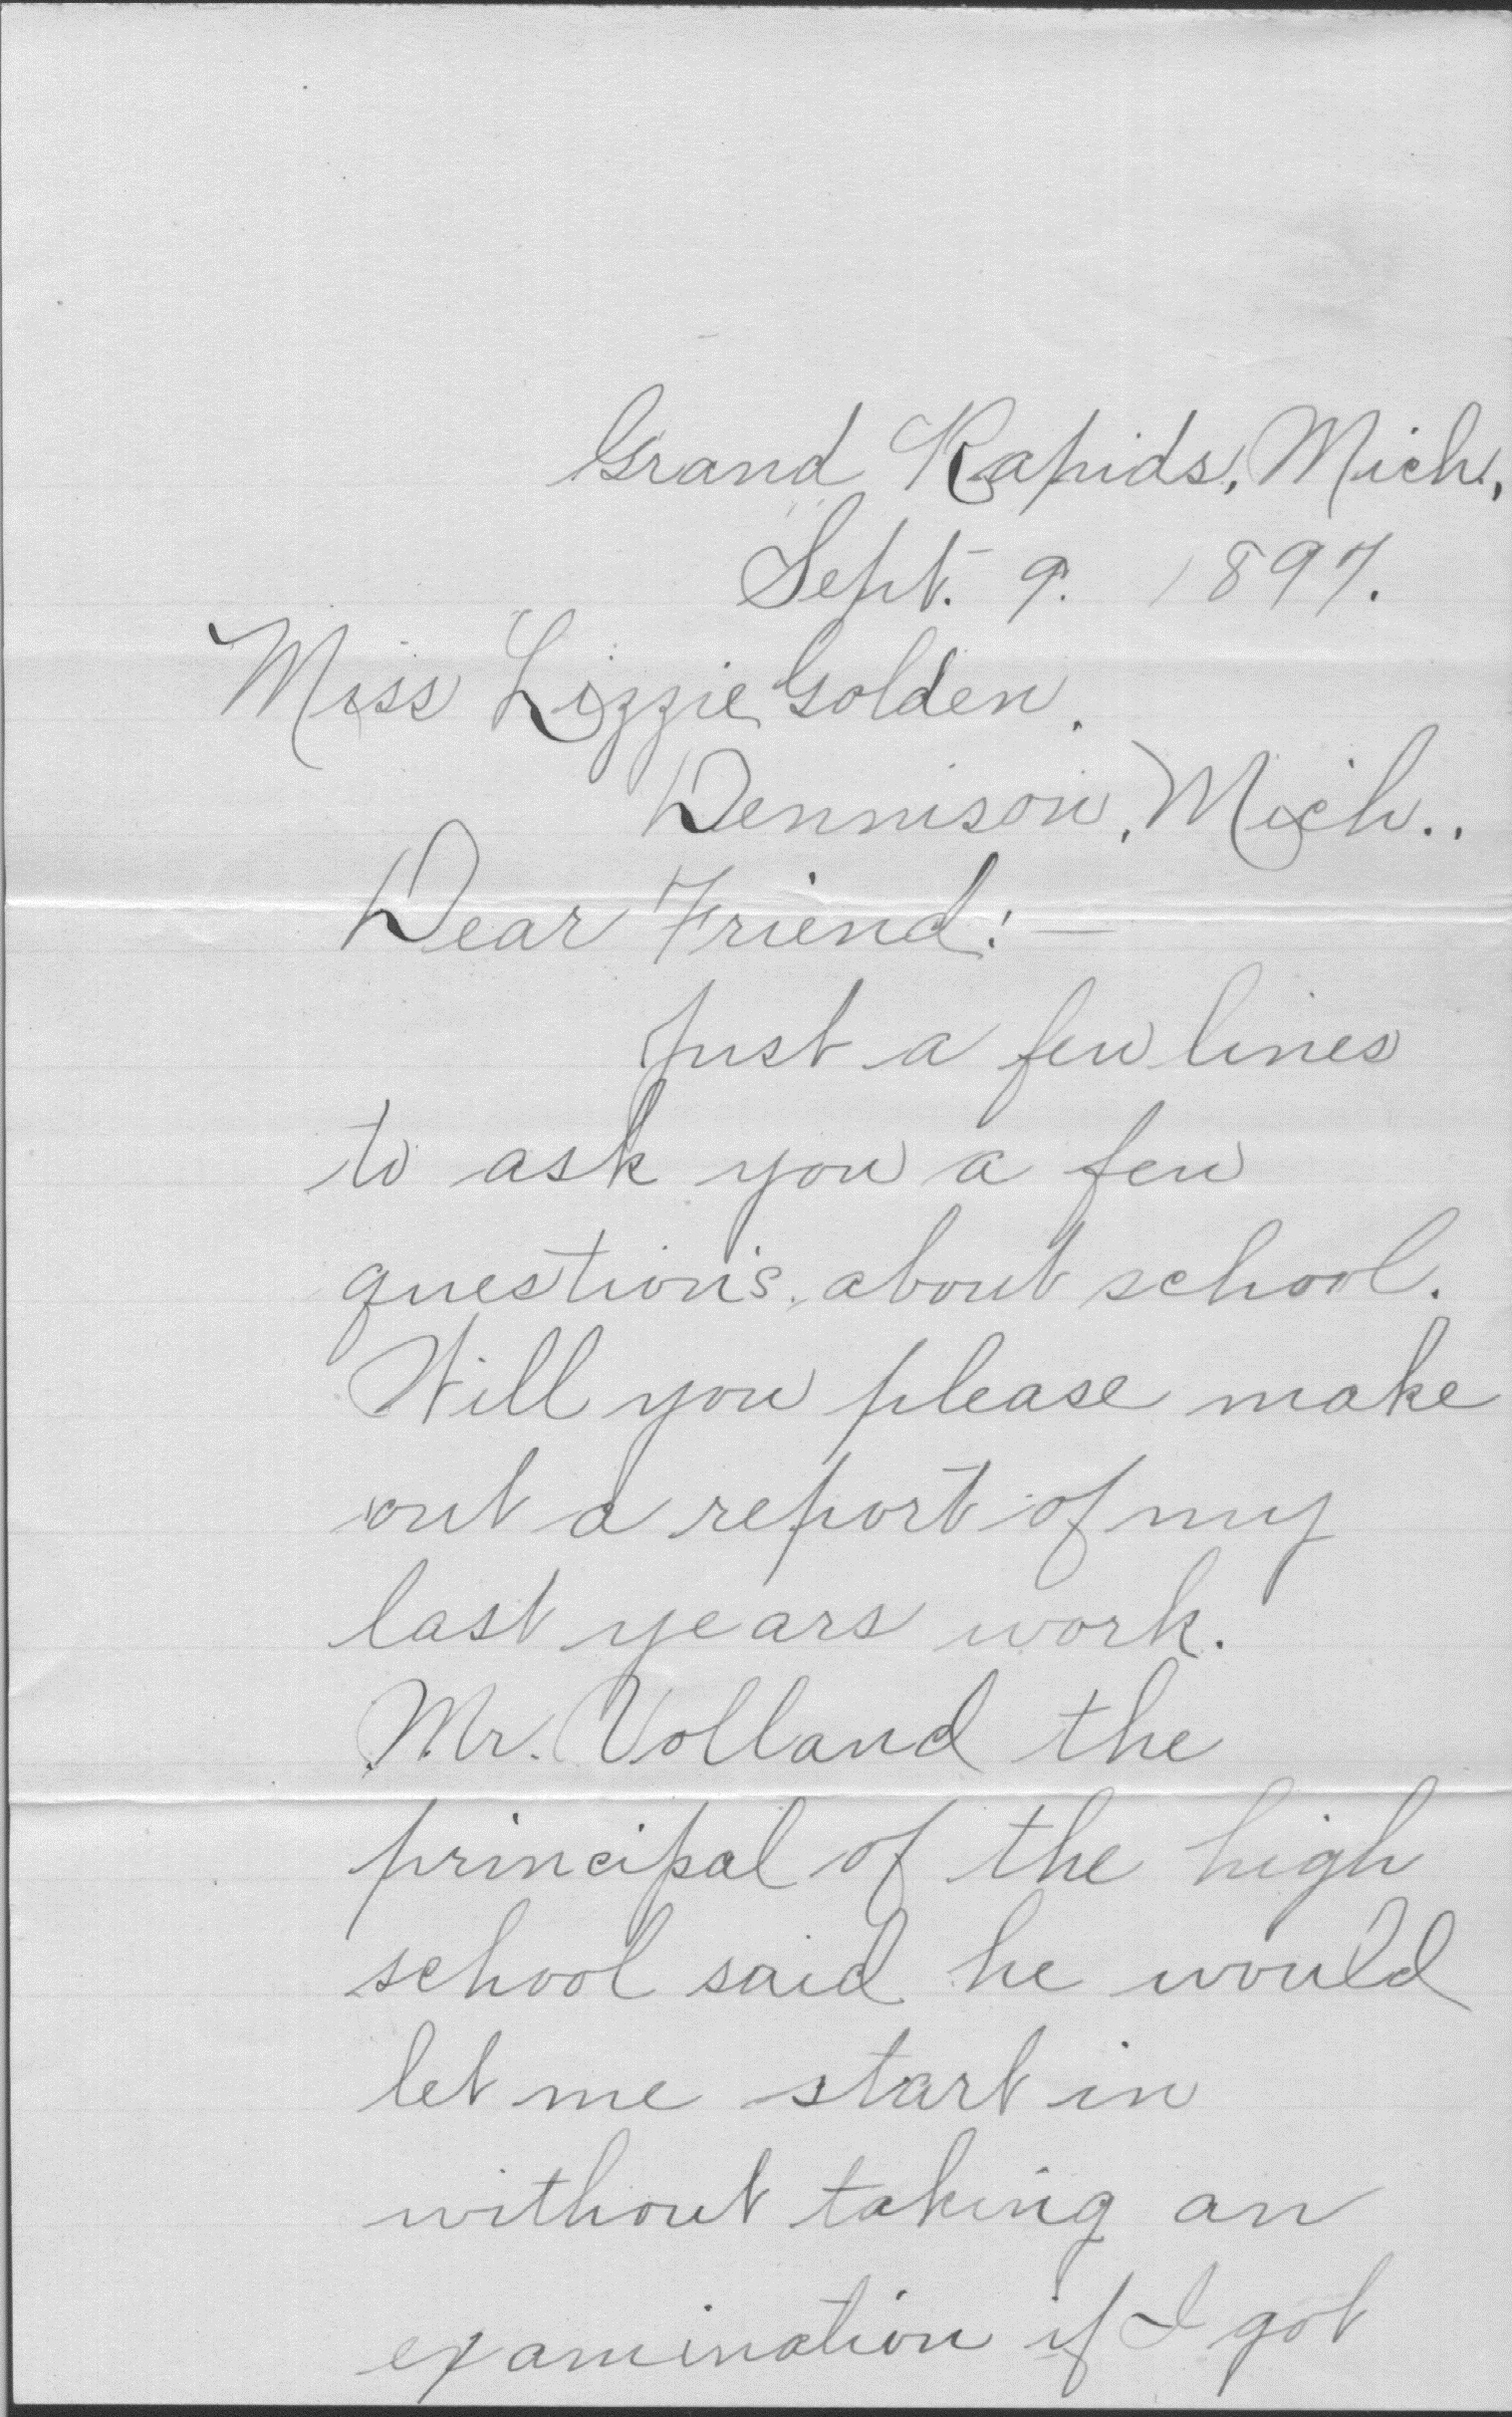 Grand Rapids, Mich.,
Sept. 9. 1897.
Miss Lizzie Golden.
Dennison, Mich..
Dear Friend:—
Just a few lines
to ask you a few
questions, about school.
Will you please make
out a report of my
last years work.
Mr. Volland the
principal of the high
school said he would
let me start in
without taking an
examination if I got